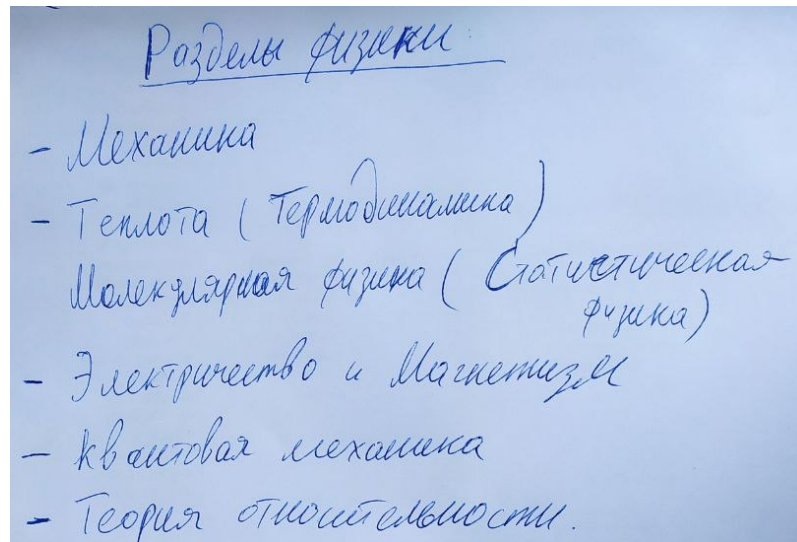 Разделы физики:
- Механика
- Теплота (Термодинамика)
Молекулярная физика (Статистическая
физика)
- Электричество и Магнетизм
- Квантовая механика
- Теория относительности.